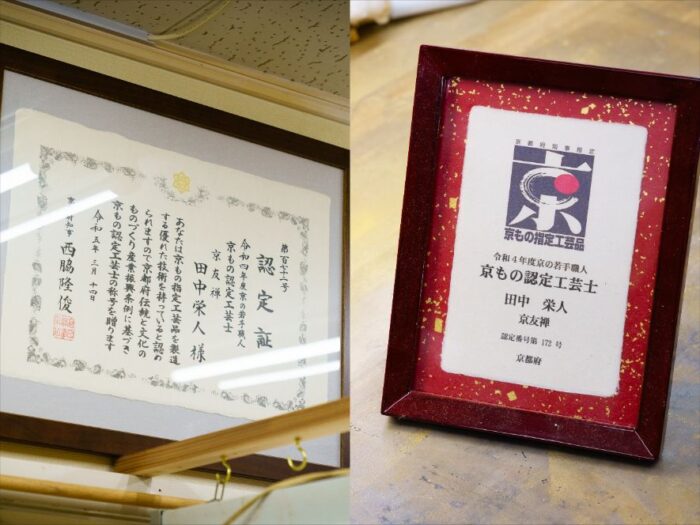 第百七十二号
認定証
令和四年度京の若手職人
京もの認定工芸士
京友禅
田中栄人 様
あなたは京もの指定工芸品を製造
する優れた技術を持っていると認め
られますので京都府伝統と文化の
ものづくり産業振興条例に基づき
京もの認定工芸士の称号を贈ります
令和五年三月十四日
京都府知事 西脇隆俊
京都府知事指定
京
京もの指定工芸品
令和4年度京の若手職人
京もの認定工芸士
田中 栄人
京友禅
認定番号第 172 号
京都府